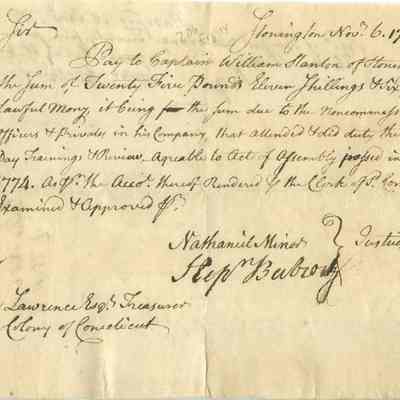 Sir Stonington Novr. 6. 17
Pay to Captain William Stanton of Stonin
the Sum of Twenty Five Pounds Eleven Shillings & Six
Lawful Mony, it being the Sum due to the Noncommiss
Officers & Privates in his Company, that attended & did duty the
Day Trainings & Review Agreable to Act of Assembly passed in
1774. As pr. the Accot. thereof Rendered by the Clerk of sd. Com
Examined & Approved pr.
Nathaniel Minor
Justic
Lawrence Esqr. Treasurer
Colony of Conecticut